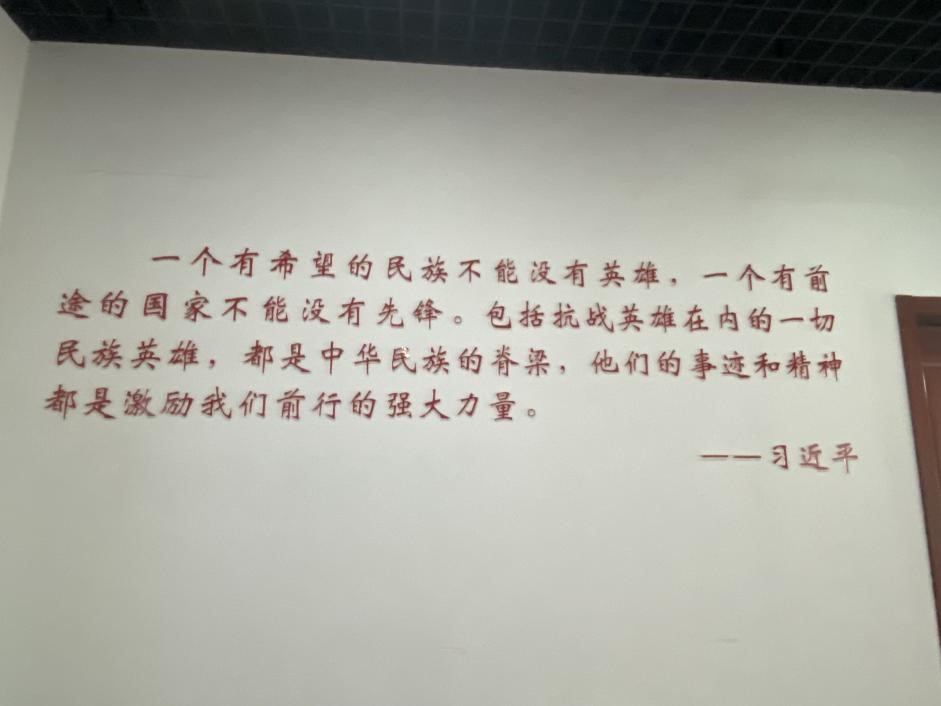 一个有希望的民族不能没有英雄，一个有前
途的国家不能没有先锋。包括抗战英雄在内的一切
民族英雄，都是中华民族的脊梁，他们的事迹和精神
都是激励我们前行的强大力量。
——习近平